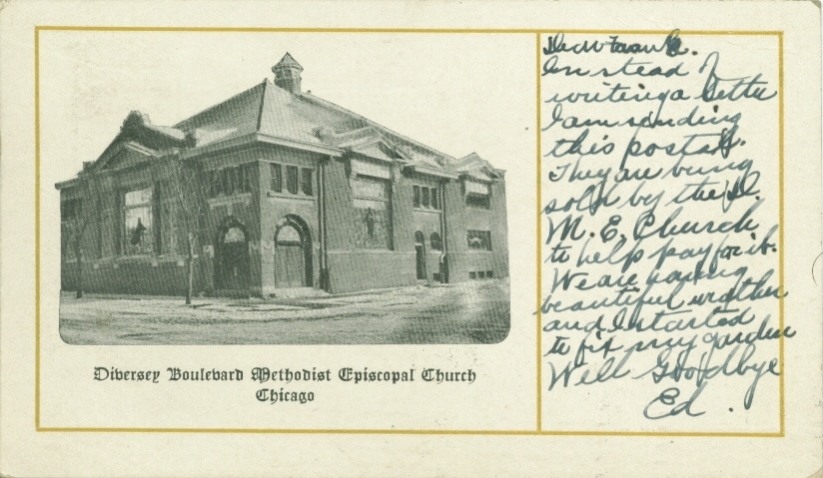 Diversey Boulevard Methodist Episcopal Church
Chicago
Dear Frank.
Instead of
writing a letter
I am sending
this postal.
They are being
sold by the D.
M. E. Church
to help pay for it.
We are having
beautiful weather
and I started
to fix my garden
Well Goodbye
Ed.